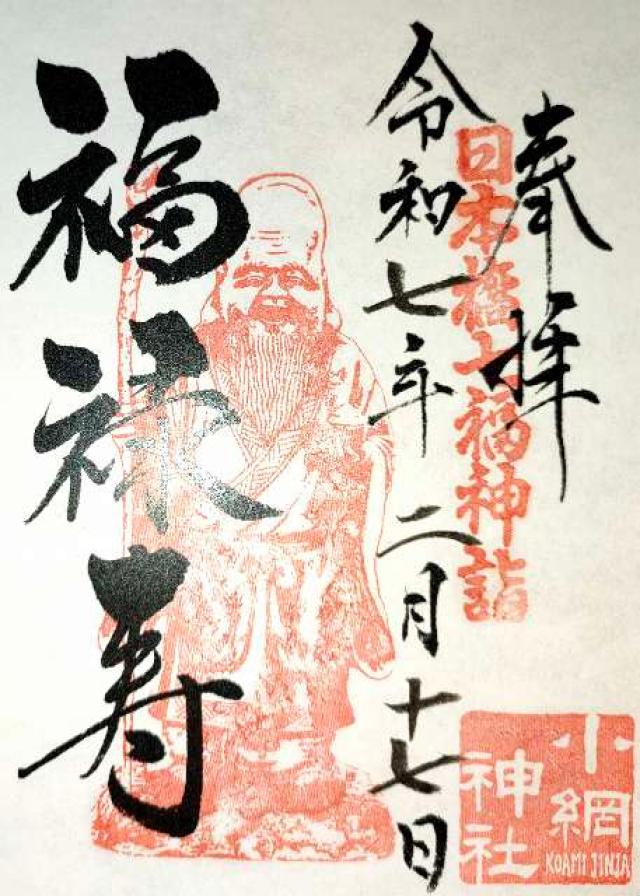 奉拝
日本橋七福神詣
令和七年二月十七日
福禄寿
小網
神社
KOAMI JINJA